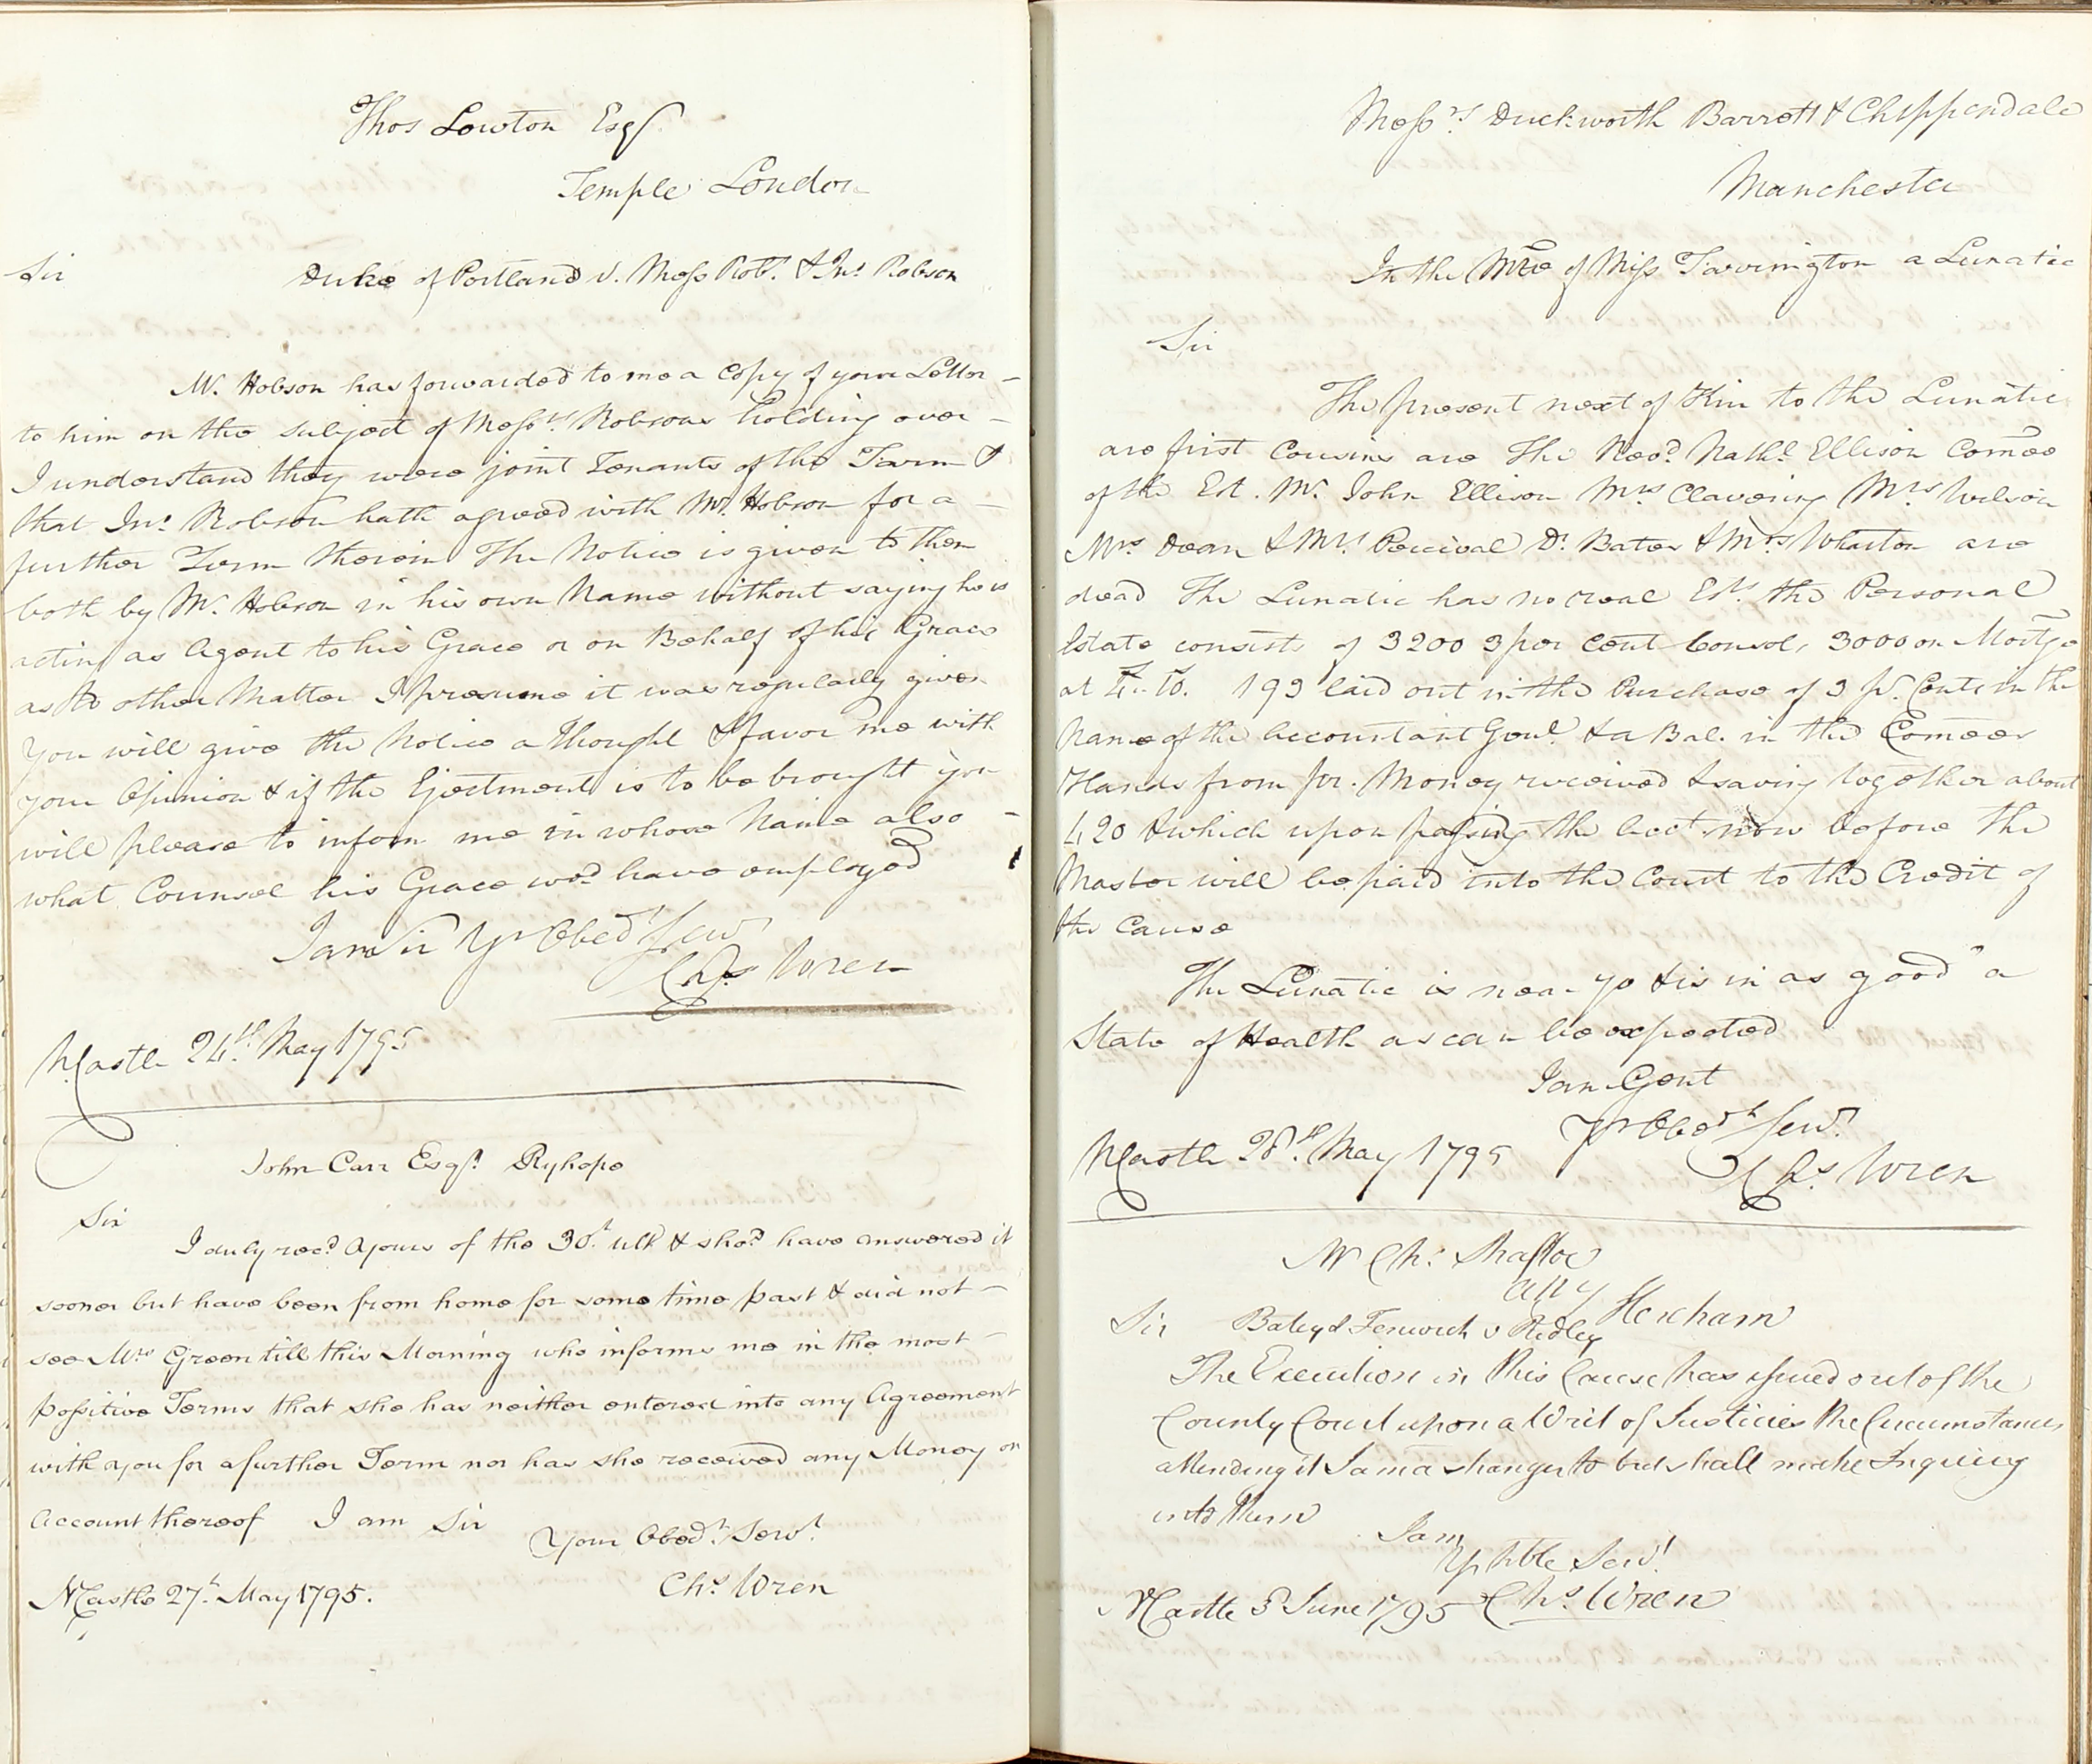 Thos Lowton Esqr
Temple London
Sir
Duke of Portland v. Messrs Robt. & Jno. Robson
Mr. Hobson has forwarded to me a Copy of your Letter
to him on the subject of Messrs. Robsons holding over
I understand they were joint Tenants of the Farm &
that Jno. Robson hath agreed with Mr. Hobson for a
further Term therein The Notice is given to them
both by Mr. Hobson in his own Name without saying he is
acting as Agent to his Grace or on Behalf of his Grace
as to other Matter I presume it was regularly given
You will give the Notice a Thought & favor me with
your Opinion & if the Ejectment is to be brought you
will please to inform me in whose Name also
what Counsel his Grace wod. have employed
I am Sir Yr Obedt. Servt
Chs Wren
NCastle 24th. May 1795
John Carr Esqr. Ryhope
Sir
I duly recd. yours of the 30th. ult & shod. have answered it
sooner but have been from home for some time past & did not
see Mrs Green till this Morning who informs me in the most
positive Terms that she has neither entered into any Agreement
with you for a further Term nor has she received any Money on
Account thereof I am Sir
Your Obedt. Servt.
Chs. Wren
NCastle 27th. May 1795.
Messrs. Duckworth Barrett & Chippendale
Manchester
In the Mre of Miss Tarrington a Lunatic
Sir
The present next of Kin to the Lunatic
are first Cousins are The Revd. Nathl. Ellison Comee
of the Est. Mr. John Ellison Mrs Clavering Mrs Wilson
Mrs. Dean & Mrs. Percival Dr. Bates & Mrs Wharton are
dead The Lunatic has no real Est. the Personal
Estate consists of 3200 3 per Cent Consols, 3000 on Mortge
at 4..10. 193 laid out in the Purchase of 3 pr. Cents in the
Name of the Accountant Genl. & a Bal. in the Comees
Hands from pr. Money received & saving together about
420 & which upon passing the Acct. now before the
Master will be paid into the Court to the Credit of
the Cause
The Lunatic is near 70 & is in as good a
State of Health as can be expected
I am Gent
Yr Obedt. Servt.
Chs. Wren
NCastle 28th. May 1795
Mr Chs. Shaftoe
Atty Hexham
Sir Bates & Fenwick v Ridley
The Execution in this Cause has issued out of the
County Court upon a Writ of Justicies the Circumstances
attending it I am a stranger to but shall make Inquiry
into them
I am
Yr hble Servt
NCastle 3 June 1795 Chs. Wren